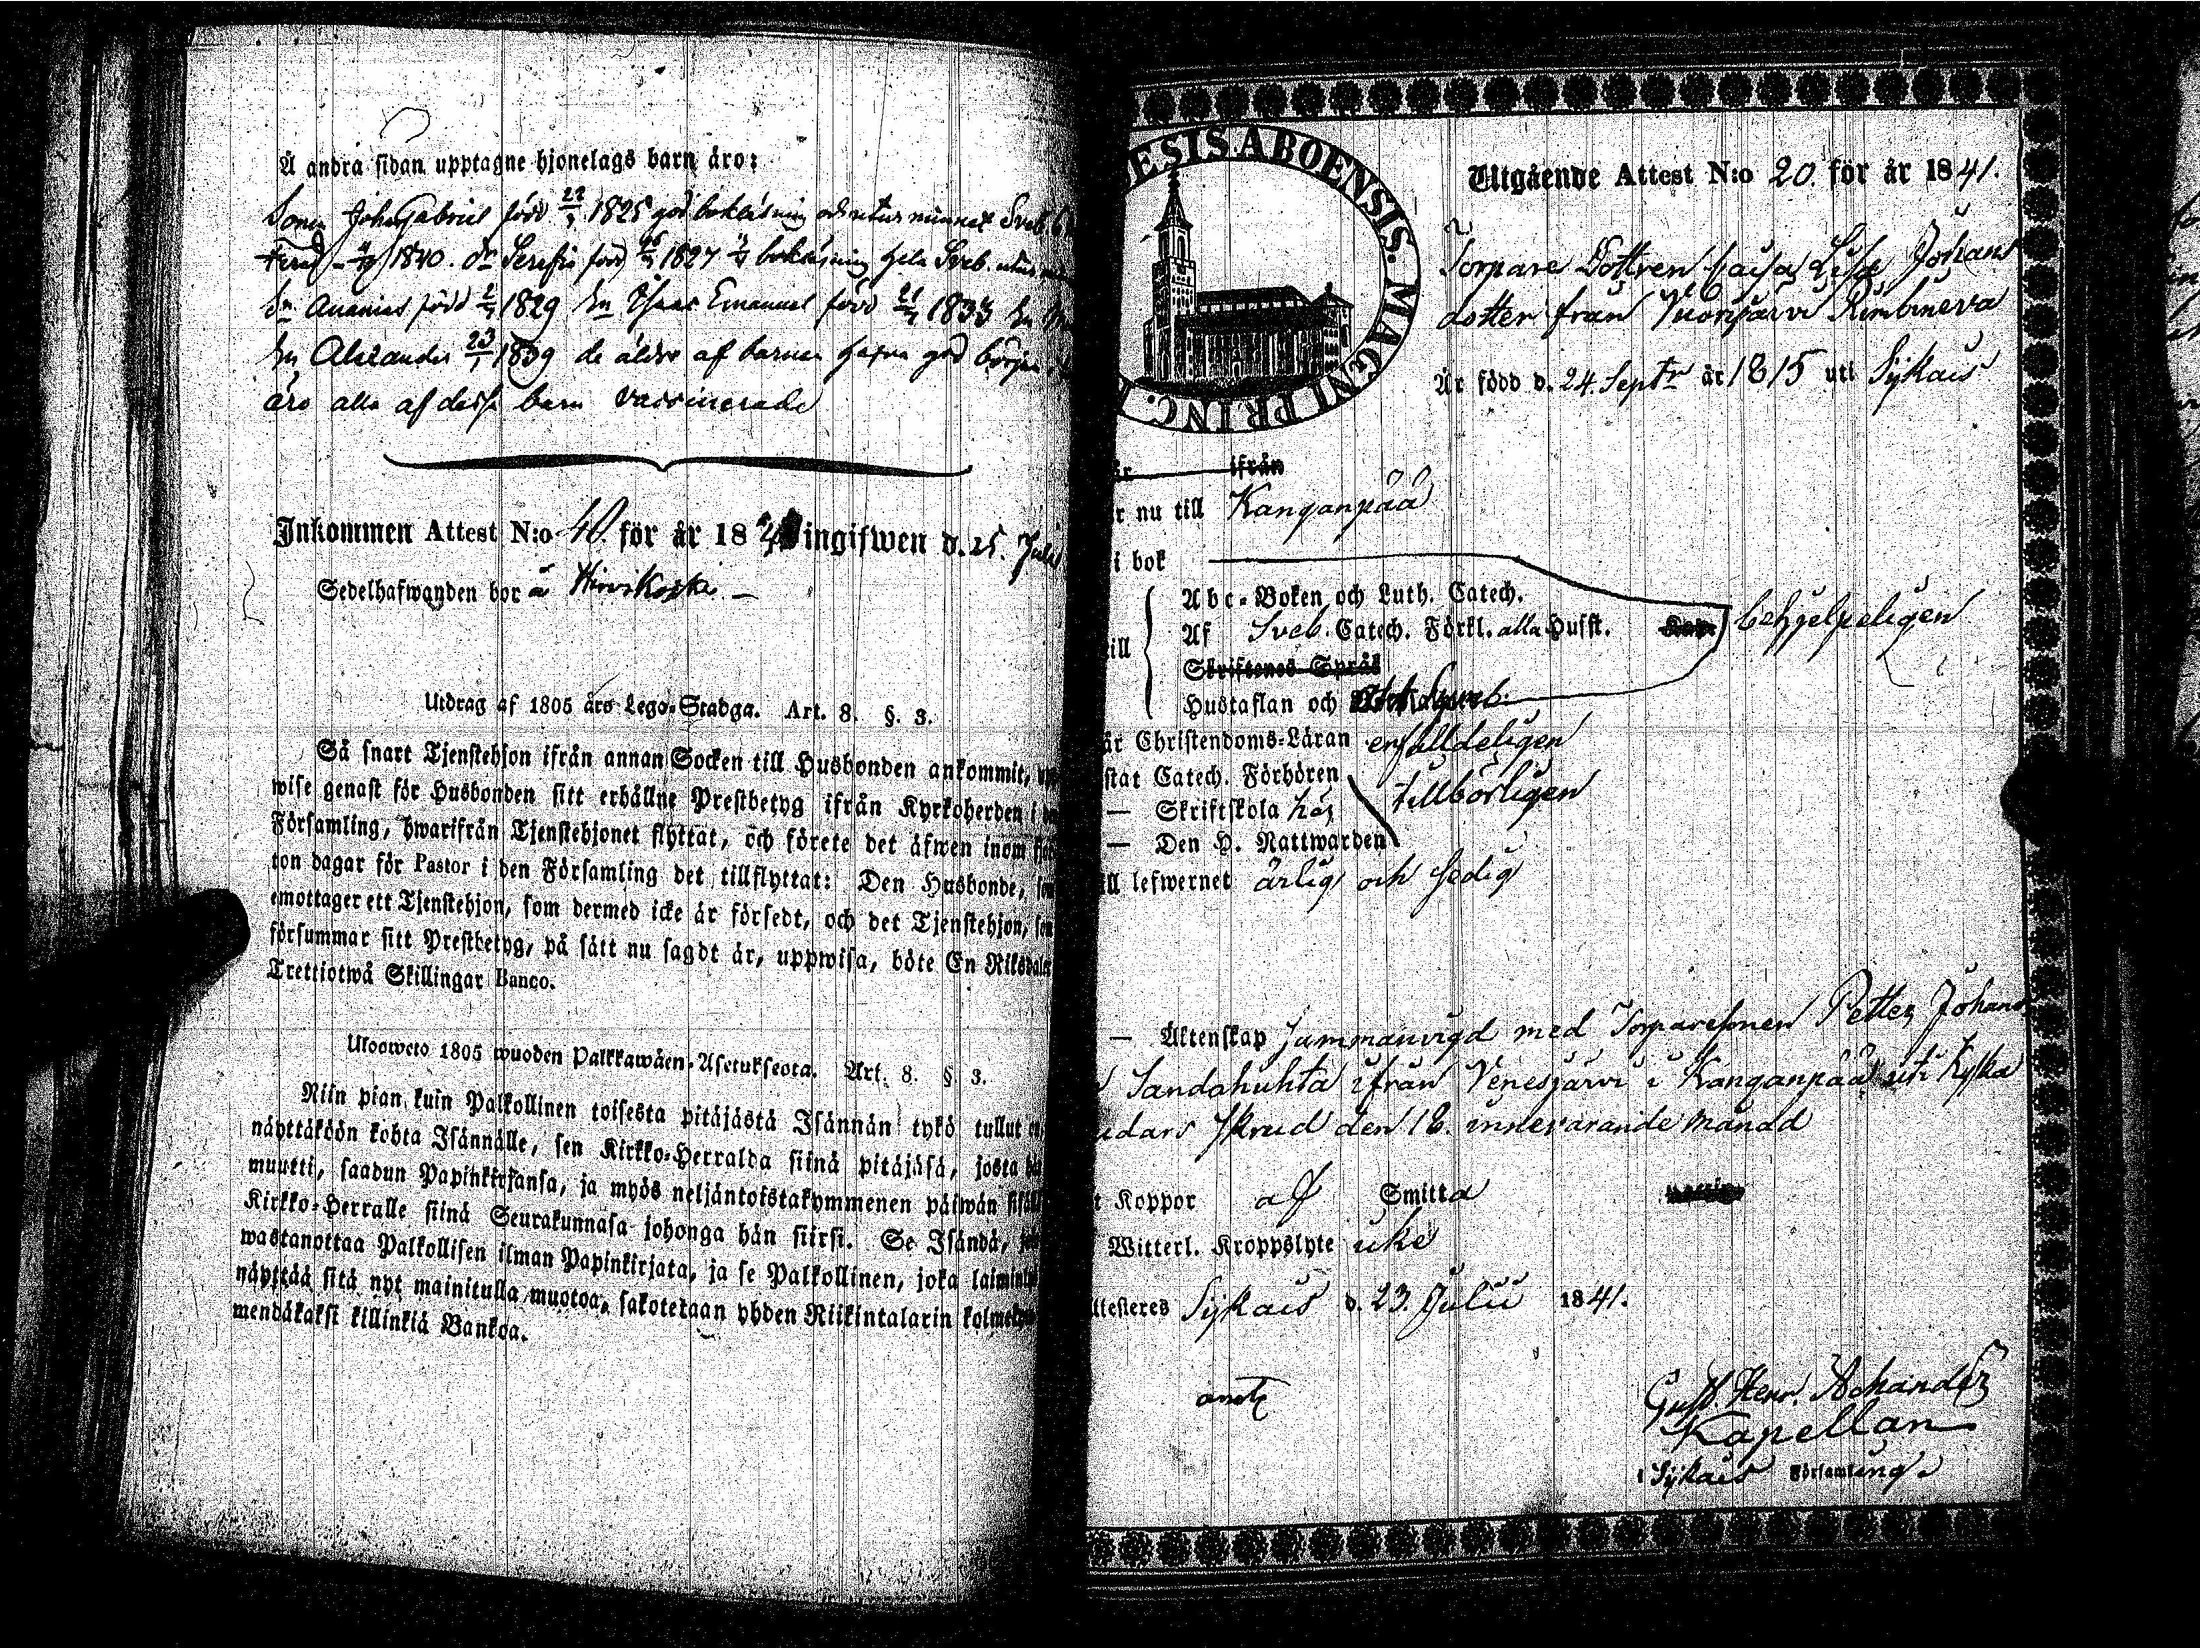 Å andra sidan upptagne hjonelags barn äro:
Sonen Joh Gabriel född 22/3 1825 god bokläsning och utur minnet Sveb
1840. dn Serafia född 1827 bokläsning hela Sveb. utur
Sn Ananias född 1829 Sn Isaac Emanuel född 21 1833 Sn
Sn Alexander 23/1 1839 de äldre af barnen hafva god början
äro alla af dessa barn vaccinerade
Inkommen Attest N:o 40. för år 18 ingifwen d. 25. Juli
Sedelhafwanden bor å Hirvikoski
Utdrag af 1805 års Lego-Stadga. Art. 8. §. 3.
Så snart Tjenstehjon ifrån annan Socken till Husbonden ankommit,
wise genast för Husbonden sitt erhållne Prestbetyg ifrån Kyrkoherden i
Församling, hwarifrån Tjenstehjonet flyttat, och förete det äfwen inom
ton dagar för Pastor i den Församling det tillflyttat: Den Husbonde,
emottager ett Tjenstehjon, som dermed icke är försedt, och det Tjenstehjon,
försummar sitt Prestbetyg, på sätt nu sagdt är, uppwisa, böte En Riksdaler
Trettiotwå Skillingar Banco.
Ulosweto 1805 wuoden Palkkawäen-Asetuksesta. Art. 8. §. 3.
Niin pian kuin Palkollinen toisesta pitäjästä Isännän tykö tullut
näyttäköön kohta Isännälle, sen Kirkko-Herralda siinä pitäjäsä, josta
muutti, saadun Papinkirjansa, ja myös neljäntoistakymmenen päiwän sisäll
Kirkko-Herralle siinä Seurakunnasa johonga hän siirsi. Se Isändä,
wastanottaa Palkollisen ilman Papinkirjata, ja se Palkollinen, joka laimin
näyttää sitä nyt mainitulla muotoa, sakotetaan yhden Riikintalarin kolme
mendäkaksi killinkiä Bankoa.
ESIS. ABOENSIS. MAGNI PRINC.
Utgående Attest N:o 20. för år 1841.
Torpare Dottren Caisa Lisa Johans
dotter från Vuorijärvi Rimbineva
Är född d. 24. Septr år 1815 uti Sijkais
ifrån
r nu till Kanganpää
i bok
Abc-Boken och Luth. Catech.
Af Sveb. Catech. Förkl. alla Husst. behjelpeligen
ill
Skriftenes Språk
Hustaflan och
är Christendoms-Läran enfalldeligen
stat Catech. Förhören
— Skriftskola tillbörligen
— Den H. Nattwarden
ill lefwernet ärlig och sedig
— Äktenskap sammanvigd med Torparesonen Petter Johans
Sandahuhta ifrån Venesjärvi i Kanganpää uti Kyrka
udars skrud den 18. innevarande månad
t Koppor af Smitta
Witterl. Kroppslyte icke
ttesteres Sijkais d. 23. Julii 1841.
Gust. Henr. Achander
Kapellan
i Sijkais Församling.